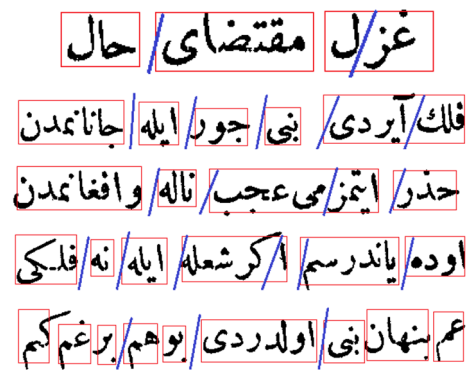 غزل مقتضای حال
فلك آیردی بنی جور ایله جانانمدن
حذر ایتمز می عجب ناله وافغانمدن
اوده یاندرسم اكر شعله ایله نه فلكی
غم پنهان بنی اولدردی بو هم بر غم كیم